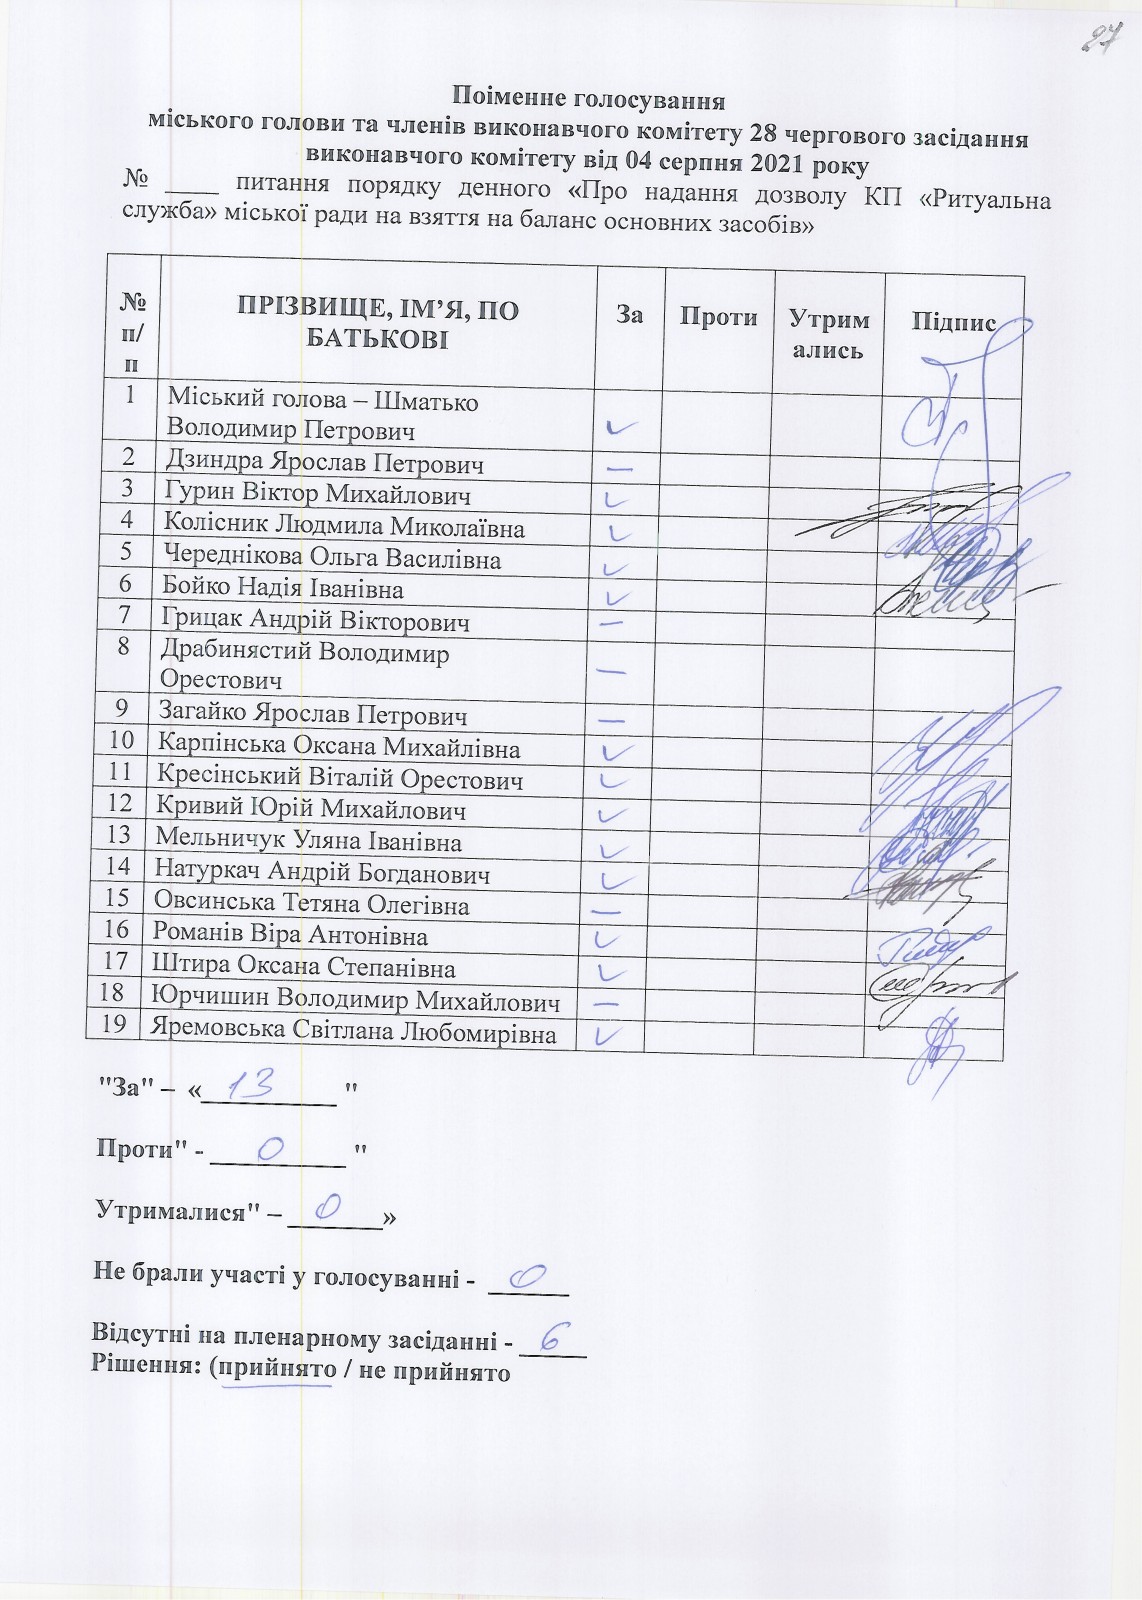 27
Поіменне голосування
міського голови та членів виконавчого комітету 28 чергового засідання
виконавчого комітету від 04 серпня 2021 року
№ ____ питання порядку денного «Про надання дозволу КП «Ритуальна
служба» міської ради на взяття на баланс основних засобів»
№ п/п ПРІЗВИЩЕ, ІМ’Я, ПО БАТЬКОВІ За Проти Утримались Підпис
1 Міський голова – Шматько
Володимир Петрович ✓
2 Дзиндра Ярослав Петрович —
3 Гурин Віктор Михайлович ✓
4 Колісник Людмила Миколаївна ✓
5 Череднікова Ольга Василівна ✓
6 Бойко Надія Іванівна ✓
7 Грицак Андрій Вікторович —
8 Драбинястий Володимир
Орестович —
9 Загайко Ярослав Петрович —
10 Карпінська Оксана Михайлівна ✓
11 Кресінський Віталій Орестович ✓
12 Кривий Юрій Михайлович ✓
13 Мельничук Уляна Іванівна ✓
14 Натуркач Андрій Богданович ✓
15 Овсинська Тетяна Олегівна —
16 Романів Віра Антонівна ✓
17 Штира Оксана Степанівна ✓
18 Юрчишин Володимир Михайлович —
19 Яремовська Світлана Любомирівна ✓
"За" – «13 "
Проти" - 0 "
Утрималися" – 0»
Не брали участі у голосуванні - 0
Відсутні на пленарному засіданні - 6
Рішення: (прийнято / не прийнято